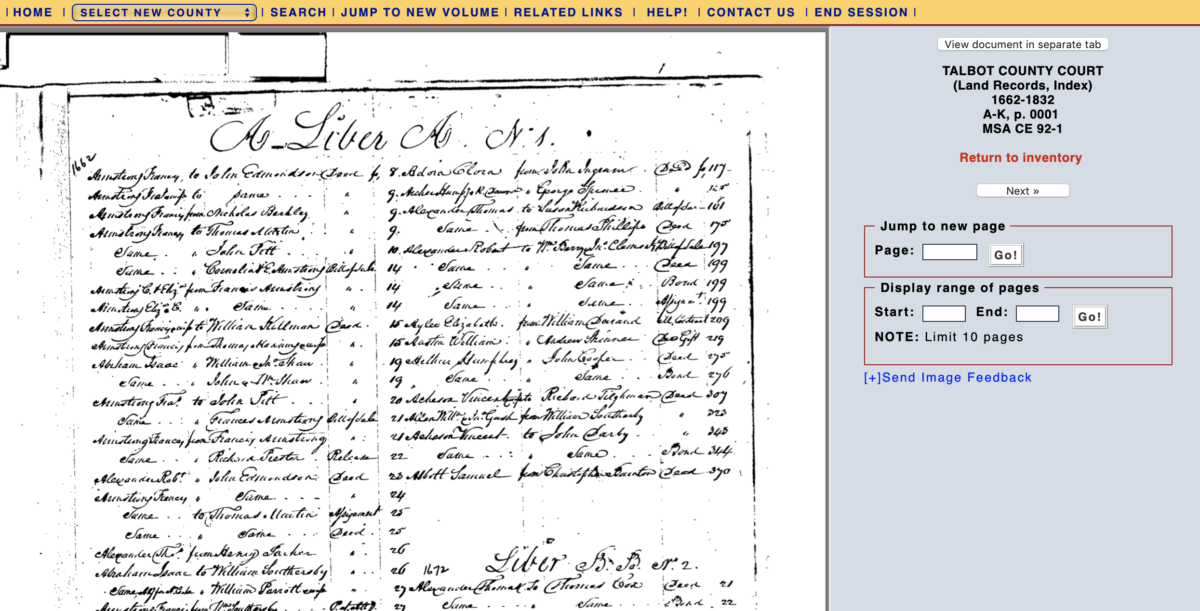 | HOME | SELECT NEW COUNTY | SEARCH | JUMP TO NEW VOLUME | RELATED LINKS | HELP! | CONTACT US | END SESSION |
1
A - Liber A. No 1.
1662
Armstrong Francy, to John Edmondson Deed fo, 8.
Armstrong Fra & wife to same " 9.
Armstrong Francy from Nicholas Barkley " 9
Armstrong Francy to Thomas Martin " 9.
Same " John Pitt " 10
Same " Cornelius E. Armstrong Bill of Sale 14
Armstrong C. & Eliz. from Francis Armstrong " 14
Armstrong Eliz. & C. " Same " 14
Armstrong Francy & wife to William Hillman Deed 15
Armstrong Francis from Thomas Manning & wife " 15
Abraham Isaac " William & Jno Shaw " 19
Same " John & Wm Shaw " 19
Armstrong Fra. to John Pitt " 20
Same " Frances Armstrong Bill of Sale 21
Armstrong Frances from Francis Armstrong " 21
Same " Richard Release 22
Alexander Robt. " John Edmondson Deed 23
Armstrong Francy " Same " 24
Same to Thomas Martin Assignment 25
Same " Same Deed 25
Alexander Tho. from Henry Parker " 26
Abraham Isaac to William Southersby " 26
Same " William Parrott & wife " 27
Armstrong Francis from Wm Southersby 27
Adora Clora from John Ingram Deed fo, 117
" George "
Alexander Thomas to Susan Richardson Bill of Sale 161
Same from Thomas Phillips Deed 175
Alexander Robert to Wm Berry Bill of Sale 197
Same Same Deed 199
Same Same Bond 199
Same Same Assignmt. 199
Aylee Elizabeth from William Durand 209
Austin William " Andrew Skinner Deo Gift 219
Humphrey " John Cooper Deed 275
Same Same Bond 276
Acheson Vincent to Richard Tilghman Deed 307
from William Southerby " 323
Acheson Vincent to John Darby " 343
Same Same Bond 344
Abbott Samuel from Christopher Deed 370
Liber B. B. No. 2.
1672
Alexander Thomas to Thomas Cox Deed 21
Same Same Bond 22
View document in separate tab
TALBOT COUNTY COURT
(Land Records, Index)
1662-1832
A-K, p. 0001
MSA CE 92-1
Return to inventory
Next »
Jump to new page
Page: Go!
Display range of pages
Start: End: Go!
NOTE: Limit 10 pages
[+]Send Image Feedback